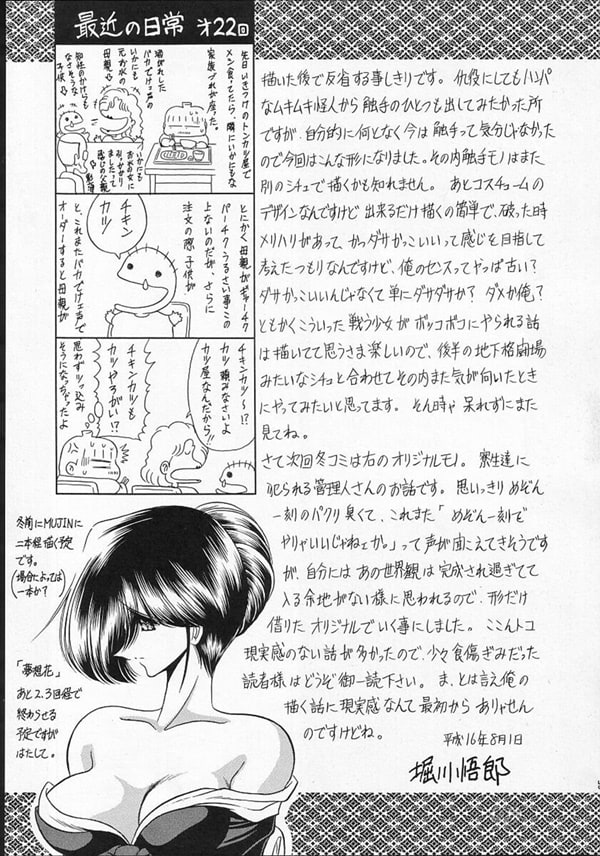 最近の日常 才22回
先日いきつけのトンカツ屋で
メシ食ってたら、隣にいかにもな
家族づれが座った。
いかにも
元お水の
母親
知性のかけらも
なさそうな
子供
チキン
カツ
とにかく母親がギャーチク
パーチクうるさい事この
上ないのだが、さらに
注文の際子供が
と、これまたバカでけェ声で
オーダーすると母親が
チキンカツ〜!?
カツ頼みなさいよ
カツ屋なんだから!!
チキンカツも
カツやろがい!?
思わずツッ込み
そうになっちゃったよ
描いた後で反省する事しきりです。仇役にしてもハンパ
なムキムキ怪人から触手のひとつも出してみたかった所
ですが、自分的に何となく今は触手って気分じゃなかった
ので今回はこんな形になりました。その内触手モノはまた
別のシチュで描くかも知れません。あとコスチュームの
デザインなんですけど出来るだけ描くの簡単で、破った時
メリハリがあって、かつダサかっこいいって感じを目指して
考えたつもりなんですけど、俺のセンスってやっぱ古い?
ダサかっこいいんじゃなくて単にダサダサか?ダメか俺?
ともかくこういった戦う少女がボッコボコにやられる話
は描いてて思うさま楽しいので、後半の地下格闘場
みたいなシチュと合わせてその内また気が向いたとき
にやってみたいと思ってます。そん時ゃ呆れずにまた
見てね。
さて次回冬コミは右のオリジナルモノ。寮生達に
犯られる管理人さんのお話です。思いっきりめぞん
一刻のパクリ臭くて、これまた「めぞん一刻で
やりゃいいじゃねェか。」って声が聞こえてきそうです
が、自分にはあの世界観は完成され過ぎてて
入る余地がない様に思われるので、形だけ
借りたオリジナルでいく事にしました。ここんトコ
現実感のない話が多かったので、少々食傷ぎみだった
読者様はどうぞ御一読下さい。ま、とは言え俺の
描く話に現実感なんて最初からありゃせん
のですけどね。
平成16年8月1日
堀川悟郎
冬前にMUJINに
二本程描く予定
です。
(場合によっては
一本か?)
「夢想花」
あと2.3回程で
終わらせる
予定ですが
はたして。